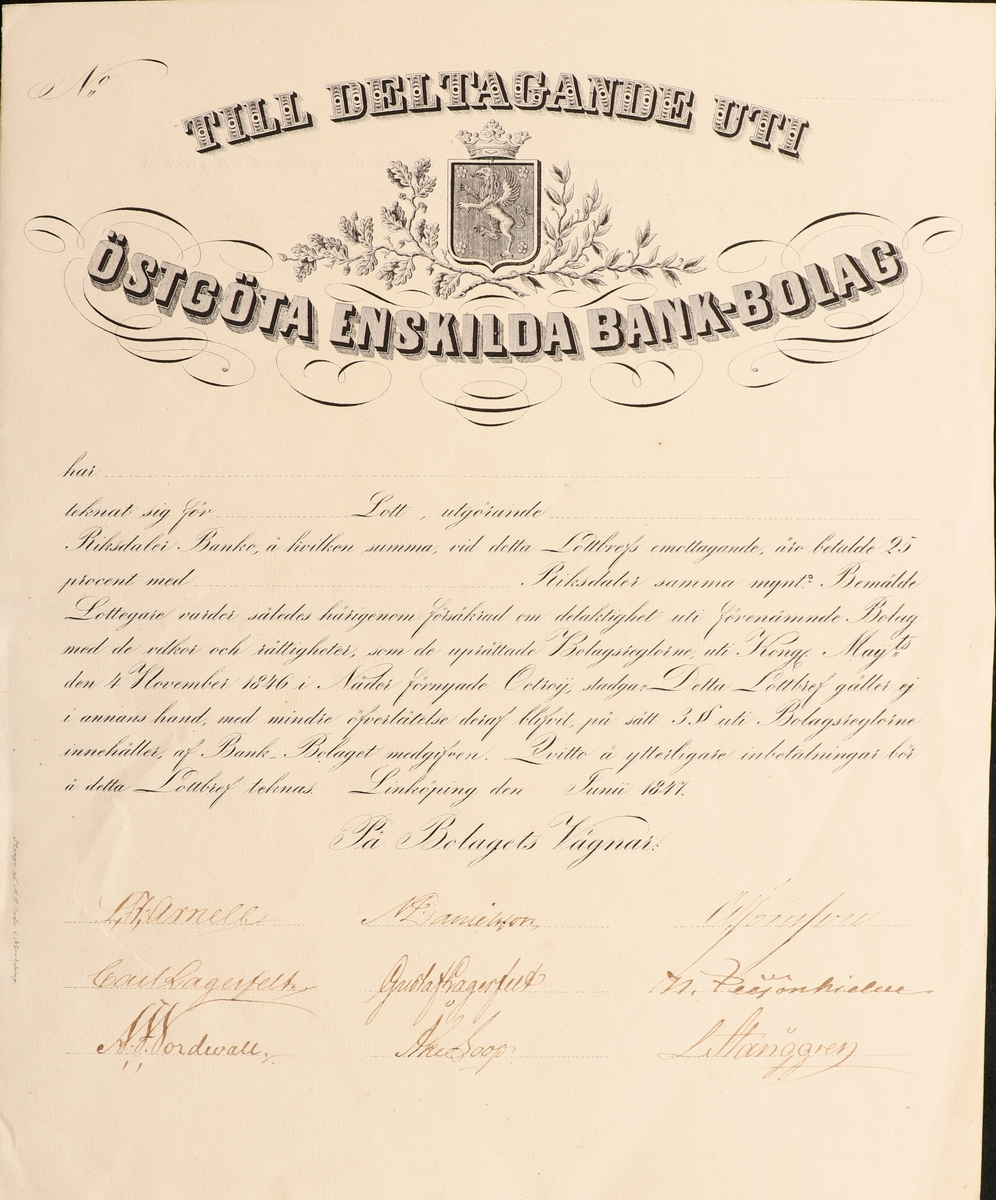 No
TILL DELTAGANDE UTI
ÖSTGÖTA ENSKILDA BANK-BOLAG
har
teknat sig för Lott, utgörande
Riksdaler Banko, å hvilken summa, vid detta Lottbrefs emottagande, äro betalde 25
procent med Riksdaler samma mynt. Bemälde
Lottegare varder således härigenom försäkrad om delaktighet uti förenämnde Bolag
med de vilkor och rättigheter, som de uprättade Bolagsreglorne, uti Kongl. May:ts
den 4 November 1846 i Nåder förnyade Octroij, stadga: Detta Lottbref gäller ej
i annans hand, med mindre öfverlåtelse deraf blifvit, på sätt 3 § uti Bolagsreglorne
innehåller, af Bank-Bolaget medgifven. Qvitto å ytterligare inbetalningar bör
å detta Lottbref teknas. Linköping den Junii 1847.
På Bolagets Vägnar:
L.F. Arnell N Danielson
Carl Lagerfelt Gustaf Lagerfelt
N. F. Nordwall Åke Soop L. Stånggren